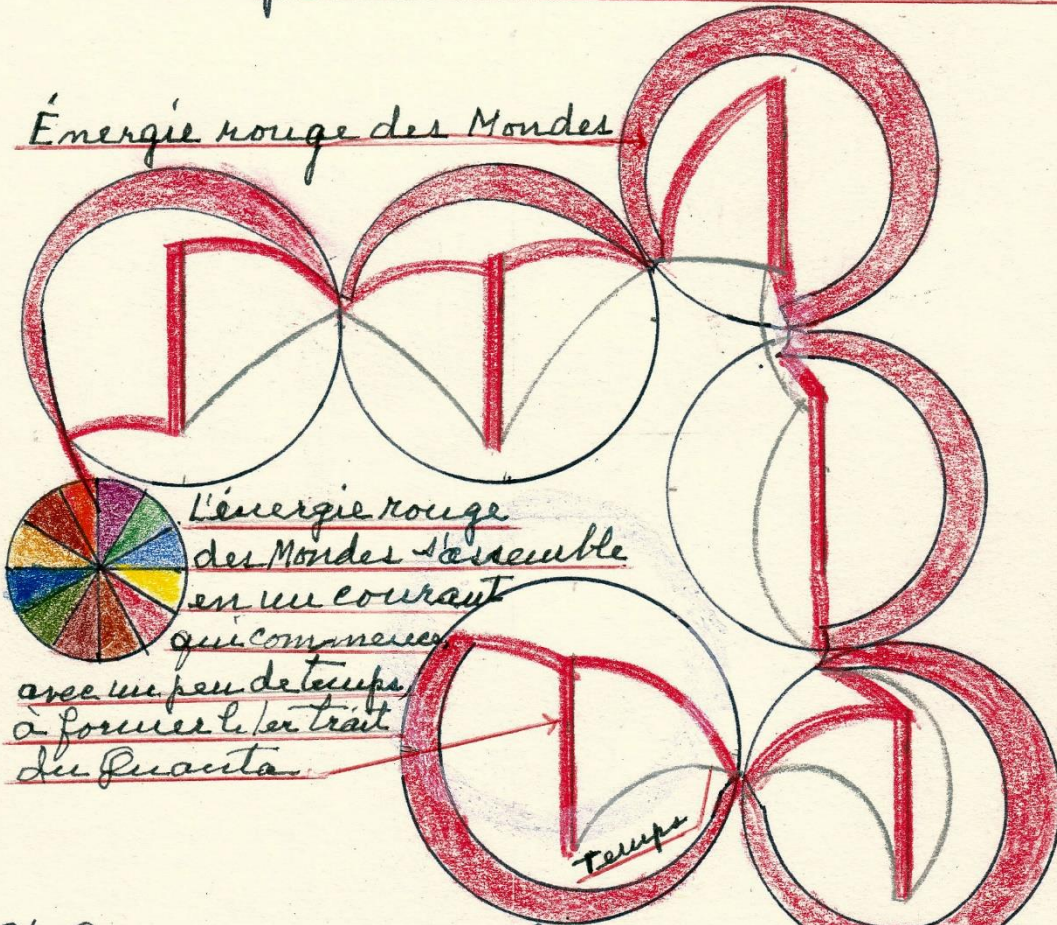 Énergie rouge des Mondes
L'énergie rouge
des Mondes s'assemble
en un courant
qui commence
avec un peu de temps
à former le 1er trait
du Quanta
Temps